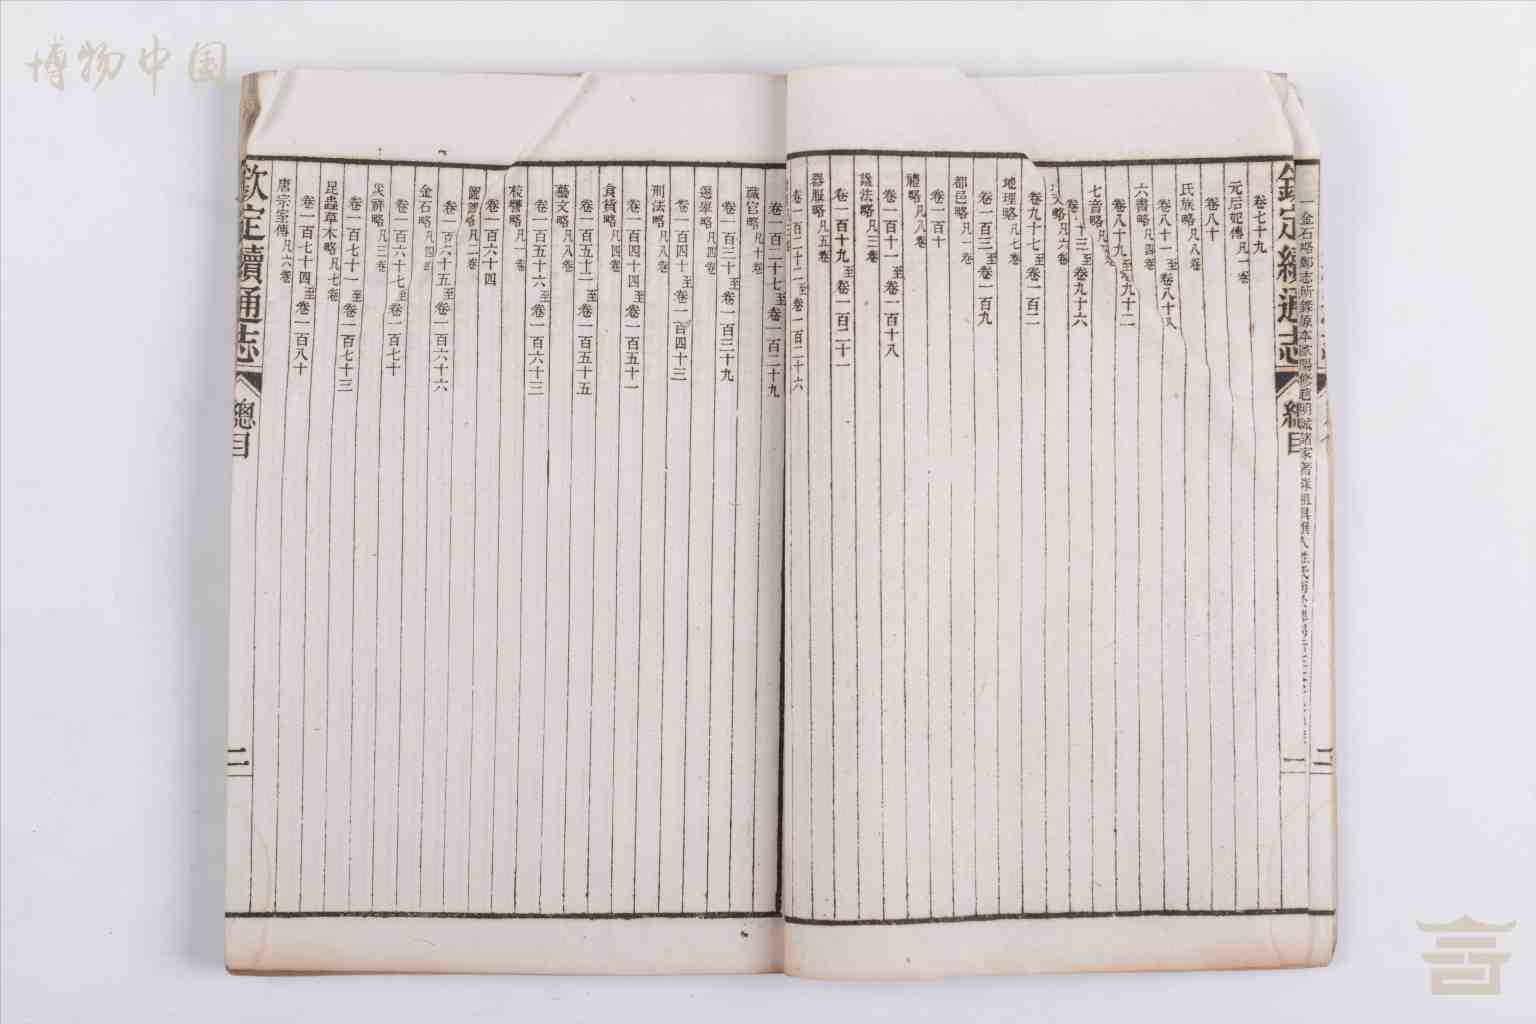 博物中国
一金石略鄭志所錄原本歐陽修趙明誠諸家著
欽定續通志 總目 一
卷七十九
元后妃傳凡一卷
卷八十
氏族略凡八卷
卷八十一至卷八十八
六書略凡四卷
卷八十九至九十二
七音略凡
卷 十三至卷九十六
文略凡六卷
卷九十七至卷一百二
地理略凡七卷
卷一百三至卷一百九
都邑略凡一卷
卷一百十
禮略凡八卷
卷一百十一至卷一百十八
諡法略凡三卷
卷一百十九至卷一百二十一
器服略凡五卷
卷一百二十二至卷一百二十六
卷一百二十七至卷一百二十九
職官略凡十卷
卷一百三十至卷一百三十九
選舉略凡四卷
卷一百四十至卷一百四十三
刑法略凡八卷
卷一百四十四至卷一百五十一
食貨略凡四卷
卷一百五十二至卷一百五十五
藝文略凡八卷
卷一百五十六至卷一百六十三
校讎略凡一卷
卷一百六十四
圖譜略凡二卷
卷一百六十五至卷一百六十六
金石略凡四卷
卷一百六十七至卷一百七十
災祥略凡三卷
卷一百七十一至卷一百七十三
昆蟲草木略凡七卷
卷一百七十四至卷一百八十
唐宗室傳凡六卷
欽定續通志 總目 二